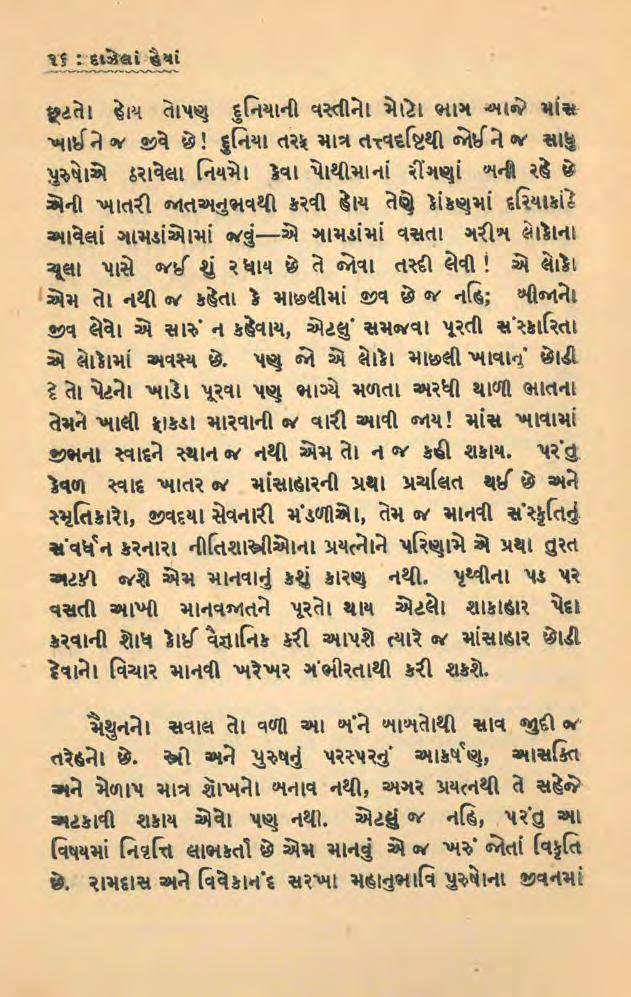 ૧૬ : દાઝેલાં હૈયાં
છૂટતો હોય તોપણ દુનિયાની વસ્તીનો મોટો ભાગ આજે માંસ
ખાઈને જ જીવે છે! દુનિયા તરફ માત્ર તત્ત્વદૃષ્ટિથી જોઈને જ સાધુ
પુરુષોએ ઠરાવેલા નિયમો કેવા પોથીમાનાં રીંગણાં બની રહે છે
એની ખાતરી જાતઅનુભવથી કરવી હોય તેણે કોંકણમાં દરિયાકાંઠે
આવેલાં ગામડાંઓમાં જવું—એ ગામડાંમાં વસતા ગરીબ લોકોના
ચૂલા પાસે જઈ શું રંધાય છે તે જોવા તસ્દી લેવી! એ લોકો
એમ તો નથી જ કહેતા કે માછલીમાં જીવ છે જ નહિ; બીજાનો
જીવ લેવો એ સારું ન કહેવાય, એટલું સમજવા પૂરતી સંસ્કારિતા
એ લોકોમાં અવશ્ય છે. પણ જો એ લોકો માછલી ખાવાનું છોડી
દે તો પેટનો ખાડો પૂરવા પણ ભાગ્યે મળતા અરધી થાળી ભાતના
તેમને ખાલી ફાકડા મારવાની જ વારી આવી જાય! માંસ ખાવામાં
જીભના સ્વાદને સ્થાન જ નથી એમ તો ન જ કહી શકાય. પરંતુ
કેવળ સ્વાદ ખાતર જ માંસાહારની પ્રથા પ્રચલિત થઈ છે અને
સ્મૃતિકારો, જીવદયા સેવનારી મંડળીઓ, તેમ જ માનવી સંસ્કૃતિનું
સંવર્ધન કરનારા નીતિશાસ્ત્રીઓના પ્રયત્નોને પરિણામે એ પ્રથા તુરત
અટકી જશે એમ માનવાનું કશું કારણ નથી. પૃથ્વીના પડ પર
વસતી આખી માનવજાતને પૂરતો થાય એટલો શાકાહાર પેદા
કરવાની શોધ કોઈ વૈજ્ઞાનિક કરી આપશે ત્યારે જ માંસાહાર છોડી
દેવાનો વિચાર માનવી ખરેખર ગંભીરતાથી કરી શકશે.
મૈથુનનો સવાલ તો વળી આ બંને બાબતોથી સાવ જુદી જ
તરેહનો છે. સ્ત્રી અને પુરુષનું પરસ્પરનું આકર્ષણ, આસક્તિ
અને મેળાપ માત્ર શોખનો બનાવ નથી, અગર પ્રયત્નથી તે સહેજે
અટકાવી શકાય એવો પણ નથી. એટલું જ નહિ, પરંતુ આ
વિષયમાં નિવૃત્તિ લાભકર્તા છે એમ માનવું એ જ ખરું જોતાં વિકૃતિ
છે. રામદાસ અને વિવેકાનંદ સરખા મહાનુભાવિ પુરુષોના જીવનમાં